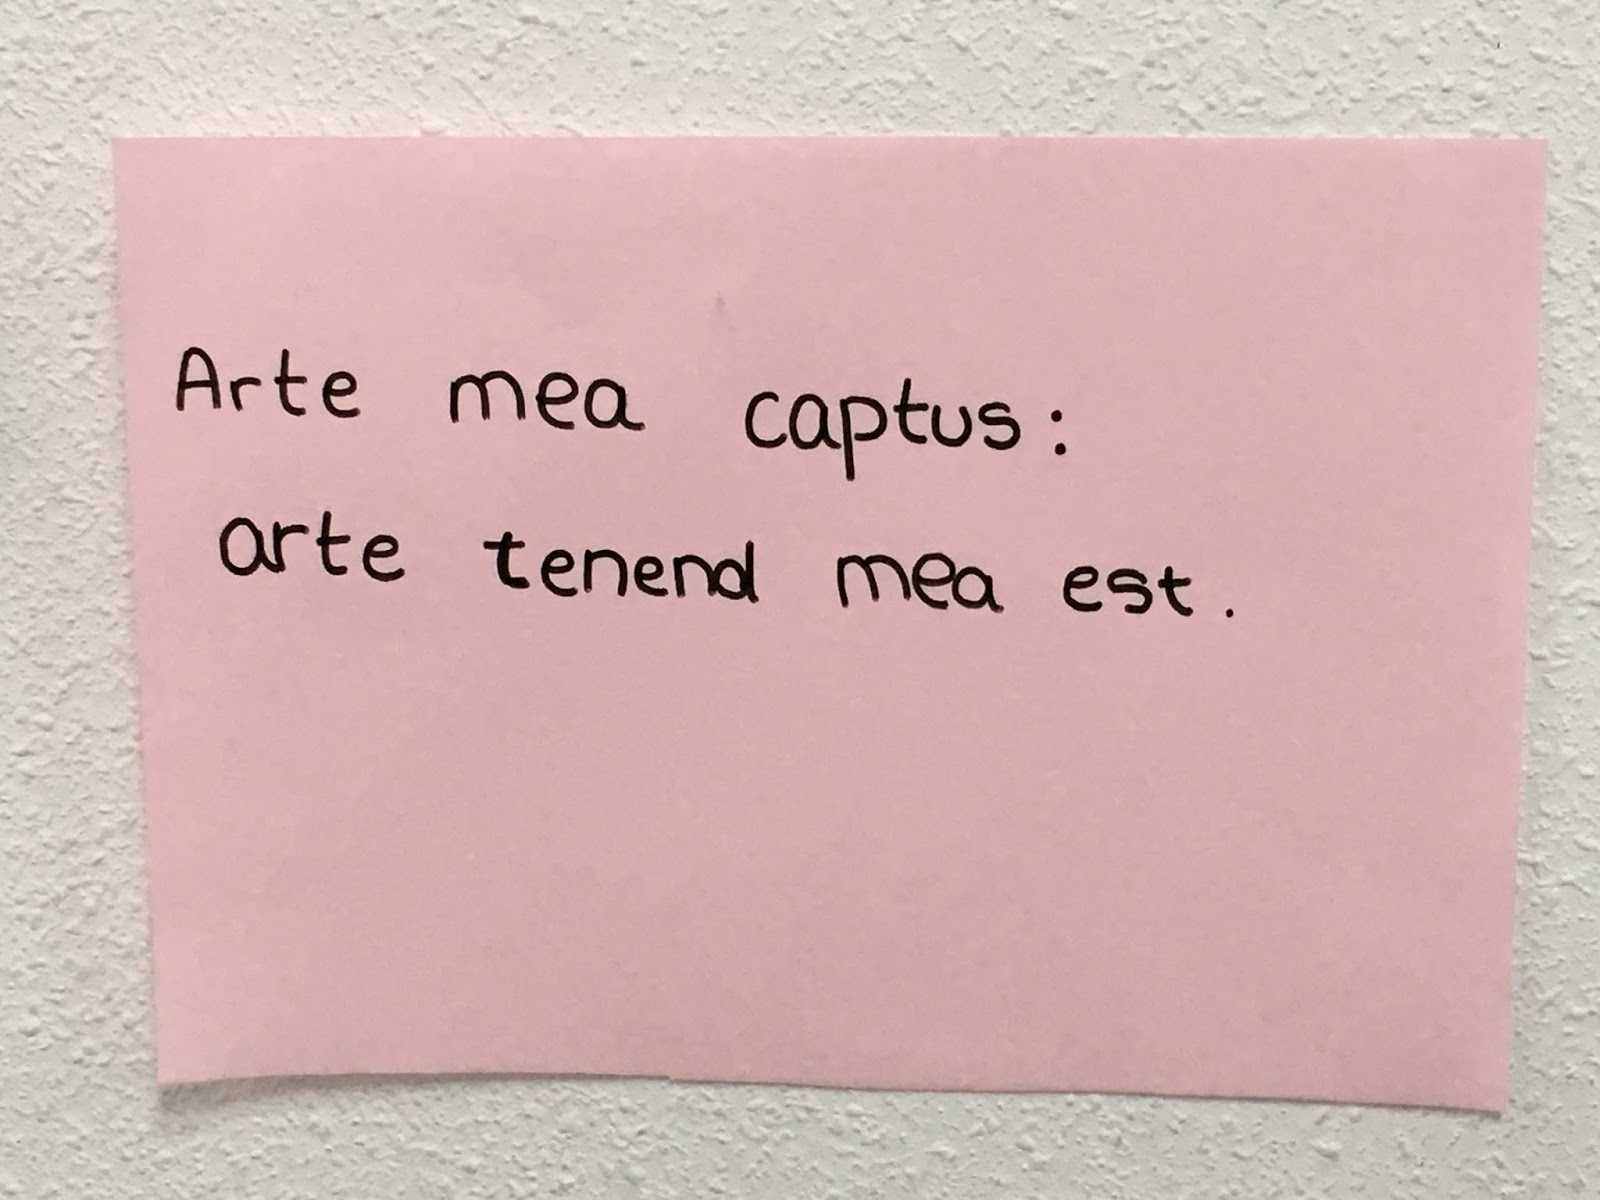 Arte mea captus:
arte tenend mea est.